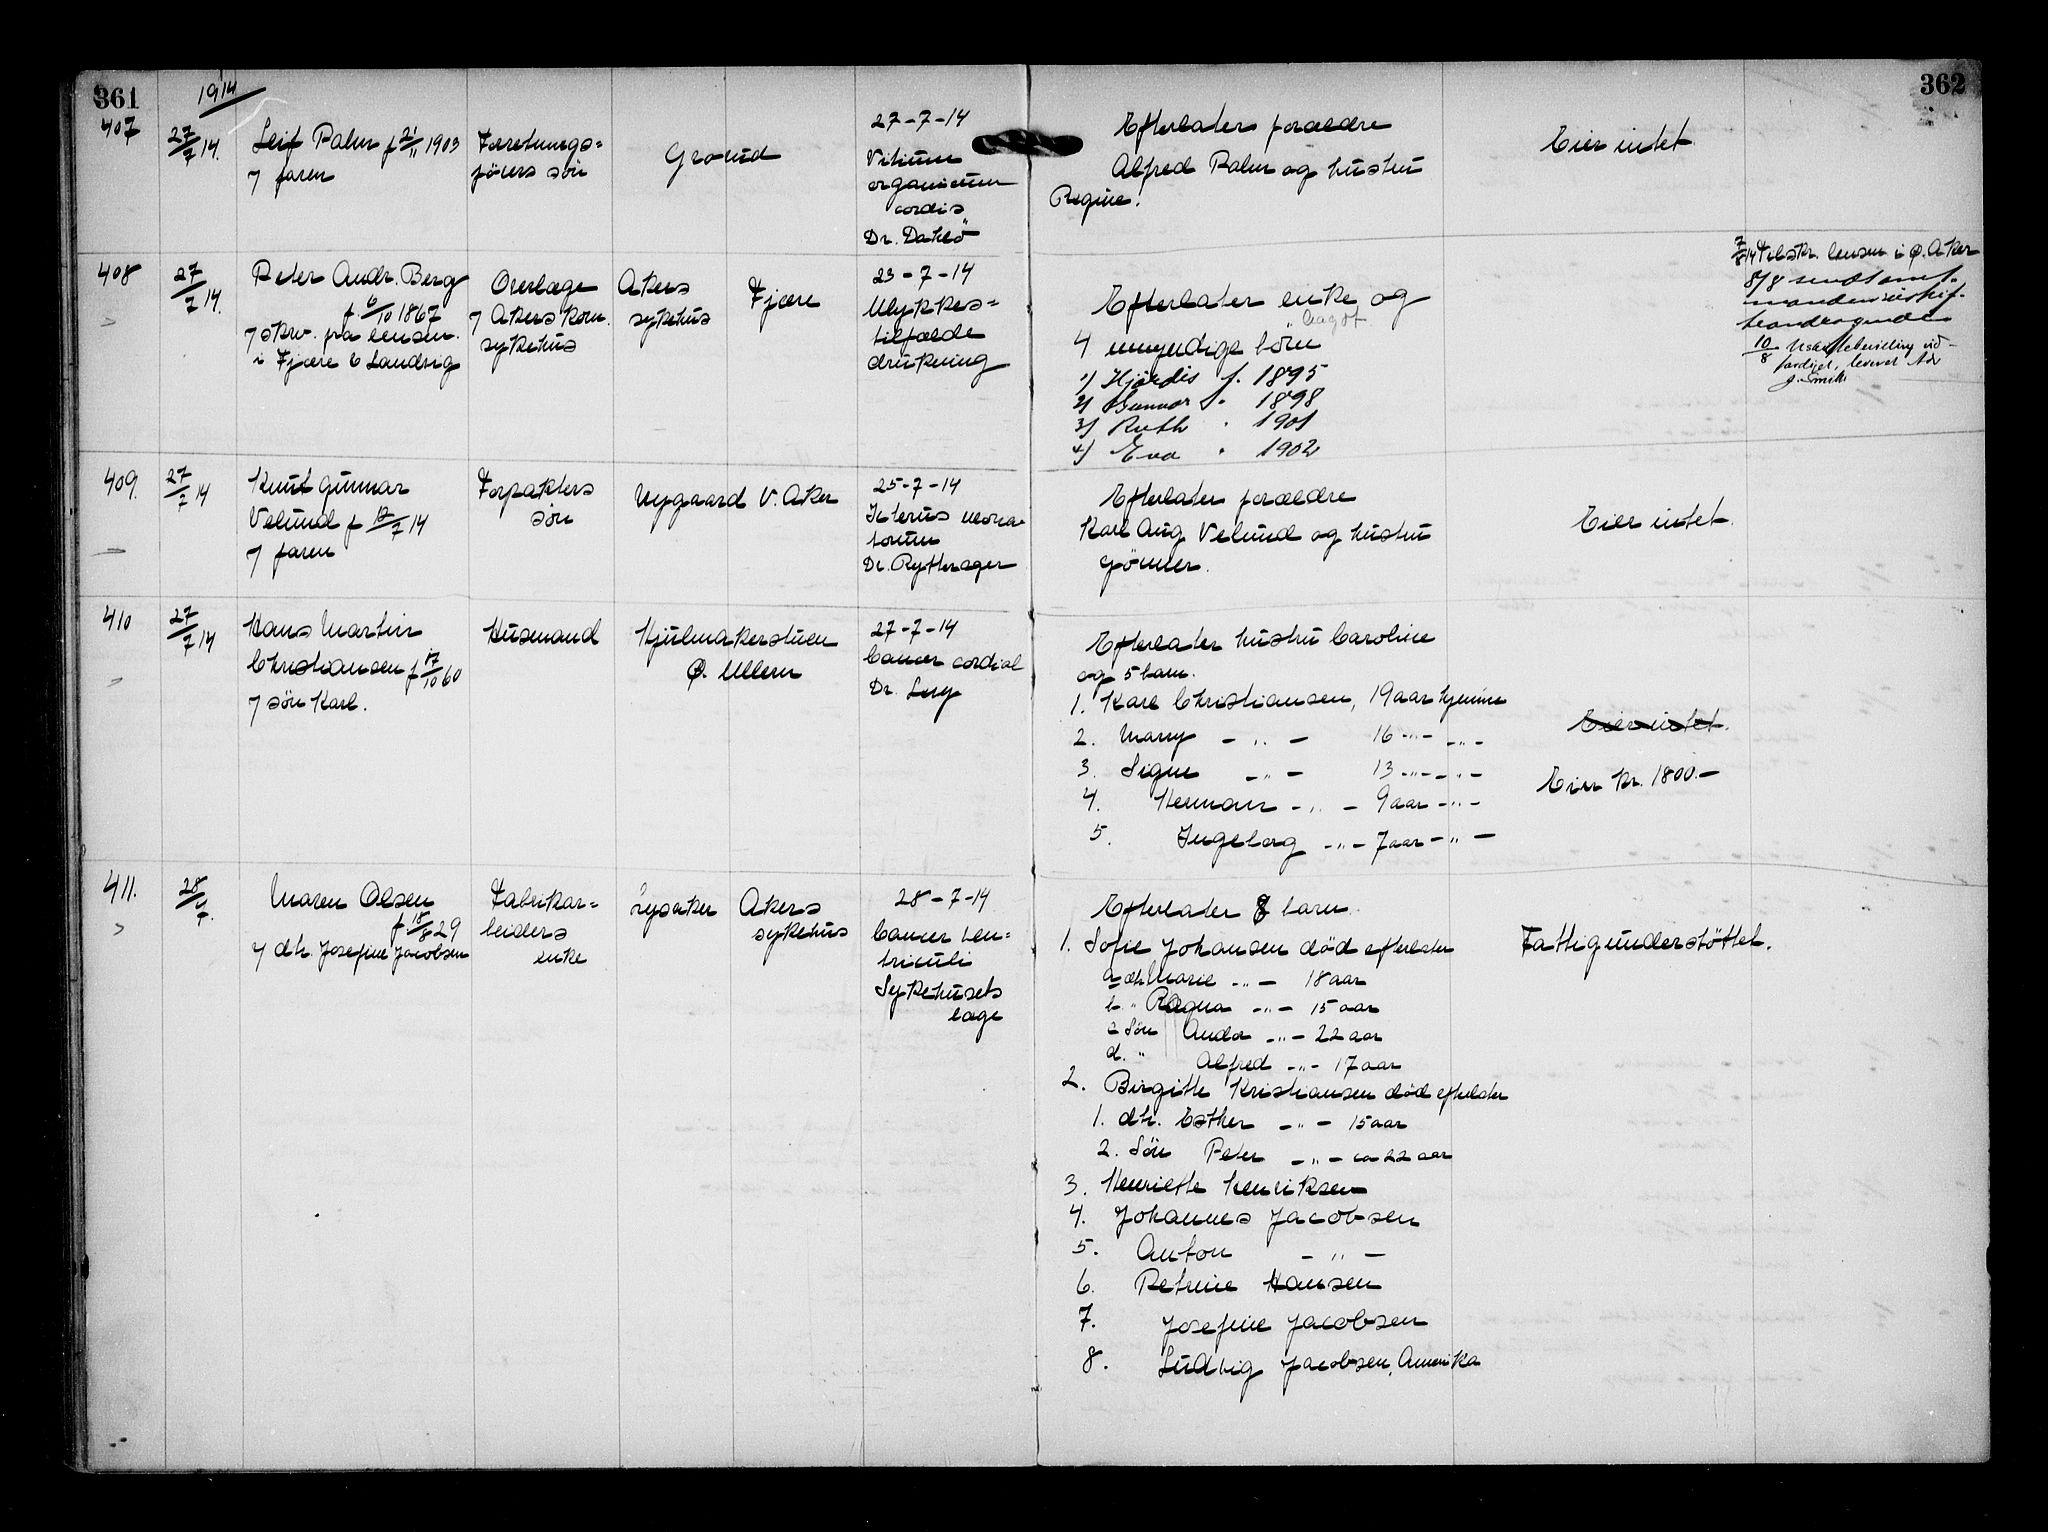 361
1914
362
407
27/7 14.
Leif Palm f 21/11 1903
7 faren
Forretnings=
förers sön
Grorud
27-7-14
Vitium
organicum
cordis
Dr. Dahlö
Efterlater foraeldre
Alfred Palm og hustru
Regine.
Eier intet
408
27/7 14.
Peter Andr. Berg
f 6/10 1867
7 skr. fra lensm.
i Fjære & Landvig
Overlæge
7 Akers kom.
sykehus
Akers
sykehus
Fjære
23-7-14
Ulykkes=
tilfælde
drukning
Efterlater enke og
4 umyndige börn
1) Hjördis f. 1895
2) Gunnar " 1898
3) Ruth " 1901
4) Eva " 1902
7/8 14 lensm. i Ö. Aker
8/8 sendt
10/8
J. Smith
409.
27/7 14
Knut Gunnar
Velund f 12/7 14
7 faren
Forpakters
sön
Nygaard V. Aker
25-7-14
Icterus neona-
torum
Dr. Rytterager
Efterlater foraeldre
Karl Aug Velund og hustru
Gönner.
Eier intet.
410
27/7 14
Hans Martin
Christiansen f 17/10 60
7 sön Karl.
Husmand
Hjulmakerstuen
Ö. Ullern
27-7-14
Cancer cardial
Dr. Lny
Efterlater hustru Caroline
og 5 barn.
1. Karl Christiansen, 19 aar hjemme
2. Marry - " - 16 -"- -"-
3. Signe -"- 13 -"- -"-
4. Herman -"- 9 aar -"-
5. Ingeborg -"- 7 aar -"-
Eier intet.
Eier kr. 1800.-
411.
28/7.
Maren Olsen
f. 18/8 29
7 dtr. Josefine Jacobsen
Fabrikar=
beiders
enke
Lysaker
Akers
sykehus
28-7-14
Cancer ven=
triculi
Sykehusets
læge
Efterlater 8 barn.
1. Sofie Johansen död efterlater
a dtr Marie -"- 18 aar
b. " Ragna -"- 15 aar
c Sön Andor -"- 22 aar
d. " Alfred -"- 17 aar
2. Birgitte Kristiansen död efterlater
1. dtr. Esther -"- 15 aar
2. Sön Peter -"- ca 22 aar
3. Henriette Henriksen
4. Johannes Jacobsen
5. Anton -"-
6. Petrine Hansen
7. Josefine Jacobsen
8. Ludvig Jacobsen, Amerika
Fattigunderstöttet.